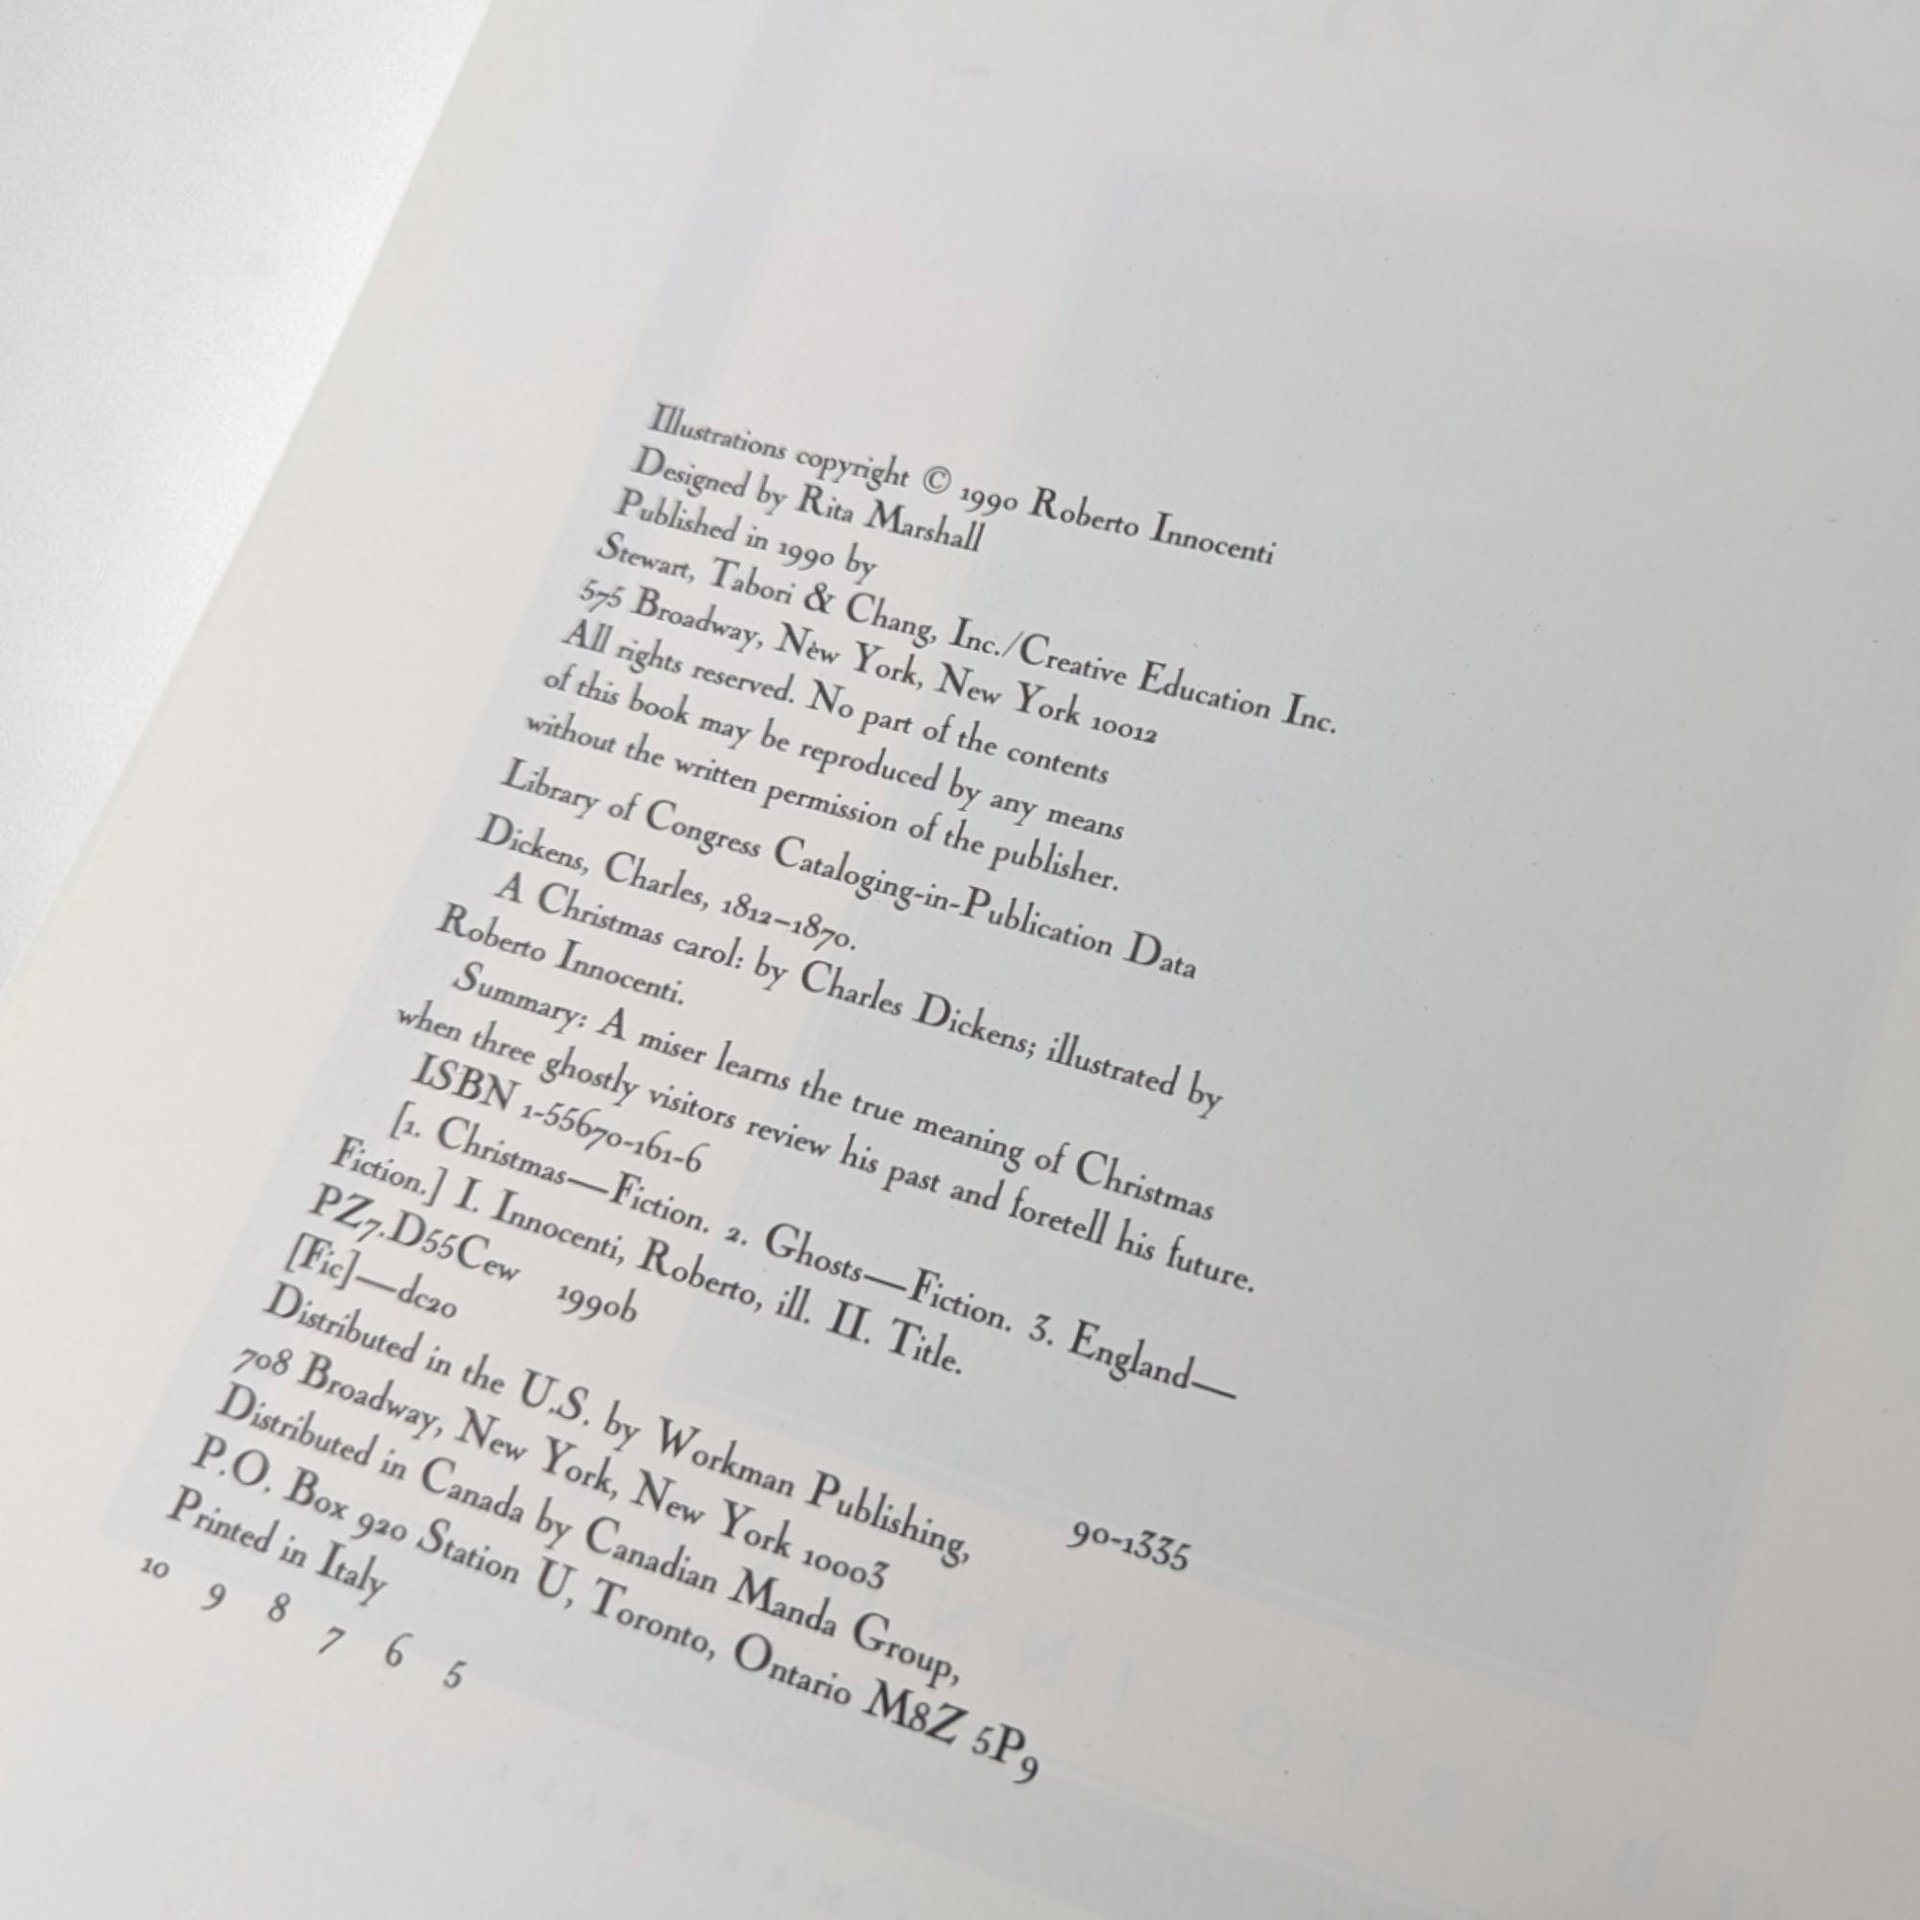 Illustrations copyright © 1990 Roberto Innocenti
Designed by Rita Marshall
Published in 1990 by
Stewart, Tabori & Chang, Inc./Creative Education Inc.
575 Broadway, New York, New York 10012
All rights reserved. No part of the contents
of this book may be reproduced by any means
without the written permission of the publisher.
Library of Congress Cataloging-in-Publication Data
Dickens, Charles, 1812–1870.
A Christmas carol: by Charles Dickens; illustrated by
Roberto Innocenti.
Summary: A miser learns the true meaning of Christmas
when three ghostly visitors review his past and foretell his future.
ISBN 1-55670-161-6
[1. Christmas—Fiction. 2. Ghosts—Fiction. 3. England—
Fiction.] I. Innocenti, Roberto, ill. II. Title.
PZ7.D55Cew 1990b
[Fic]—dc20 90-1335
Distributed in the U.S. by Workman Publishing,
708 Broadway, New York, New York 10003
Distributed in Canada by Canadian Manda Group,
P.O. Box 920 Station U, Toronto, Ontario M8Z 5P9
Printed in Italy
10 9 8 7 6 5